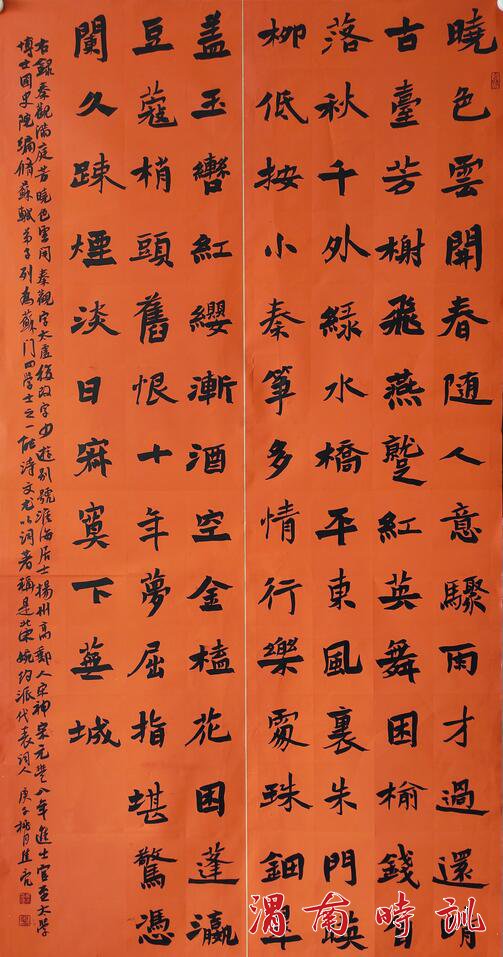 曉色雲開春随人意驟雨才過還晴
古臺芳榭飛燕蹴紅英舞困榆錢自
落秋千外緑水橋平東風裏朱門映
柳低按小秦箏多情行樂處珠鈿翠
蓋玉轡紅纓漸酒空金榼花困蓬瀛
豆蔻梢頭舊恨十年夢屈指堪驚憑
闌久踈煙淡日寂寞下蕪城
右録秦觀滿庭芳曉色雲開秦觀字太虚後改字少遊别號淮海居士揚州高郵人宋神宗元豐八年進士官至太學
博士國史院編修蘇軾弟子列為蘇门四學士之一能詩文尤以詞著稱是北宋婉约派代表詞人庚子桃月
渭南時訊